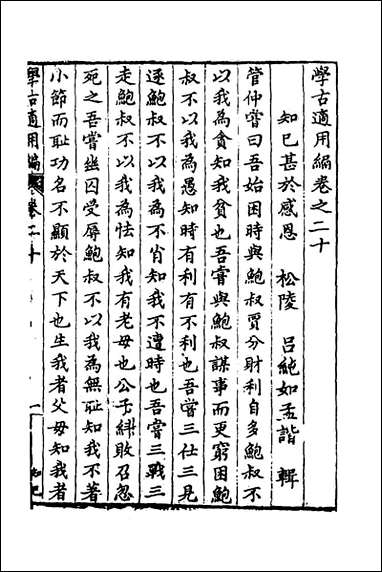 學古適用編卷之二十
知己甚於感恩　松陵　呂純如孟諧　輯
管仲嘗曰吾始困時與鮑叔賈分財利自多鮑叔不
以我為貪知我貧也吾嘗與鮑叔謀事而更窮困鮑
叔不以我為愚知時有利有不利也吾嘗三仕三見
逐鮑叔不以我為不肖知我不遭時也吾嘗三戰三
走鮑叔不以我為怯知我有老母也公子糾敗召忽
死之吾嘗幽囚受辱鮑叔不以我為無恥知我不著
小節而恥功名不顯於天下也生我者父母知我者
學古適用編　卷二十　一　知己